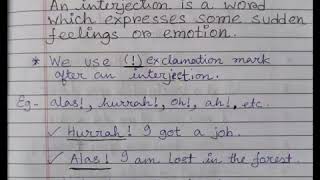 An interjection is a word
which expresses some sudden
feelings or emotion.
* We use (!) exclamation mark
after an interjection.
Eg - alas!, hurrah!, oh!, ah!, etc.
✓ Hurrah! I got a job.
✓ Alas! I am lost in the forest.